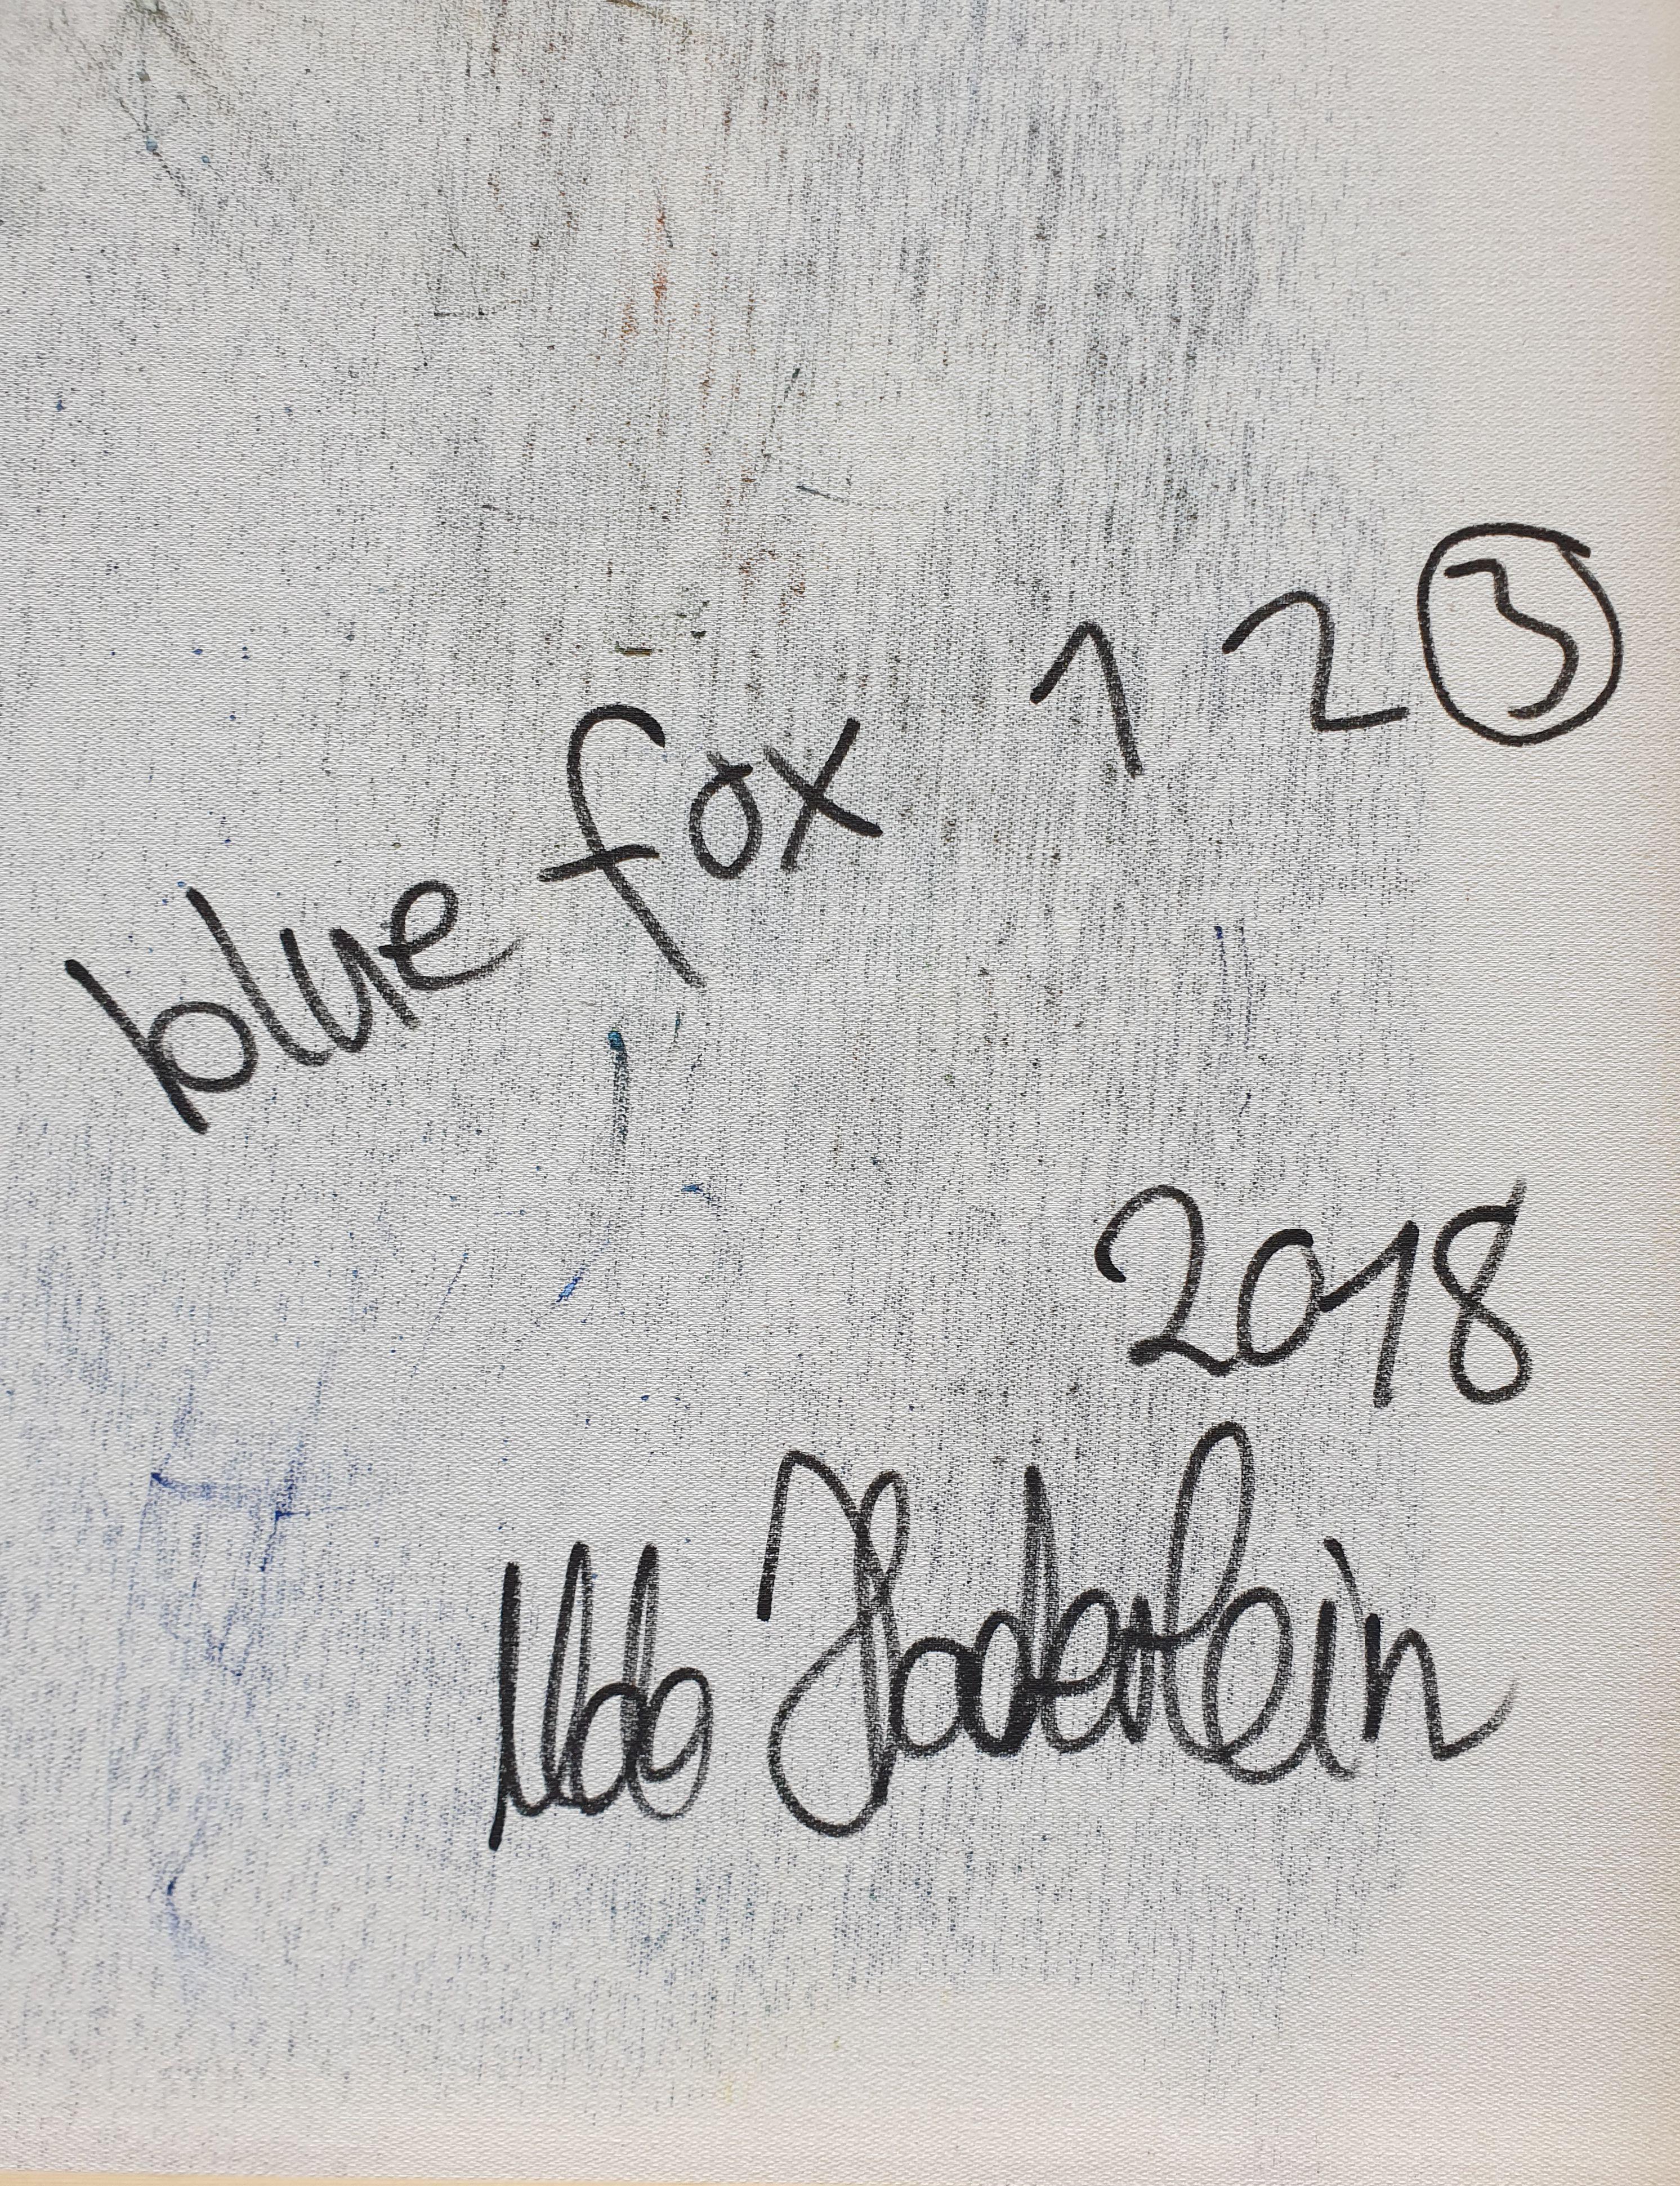 blue fox 1 2 3
2018
Udo Haderlein